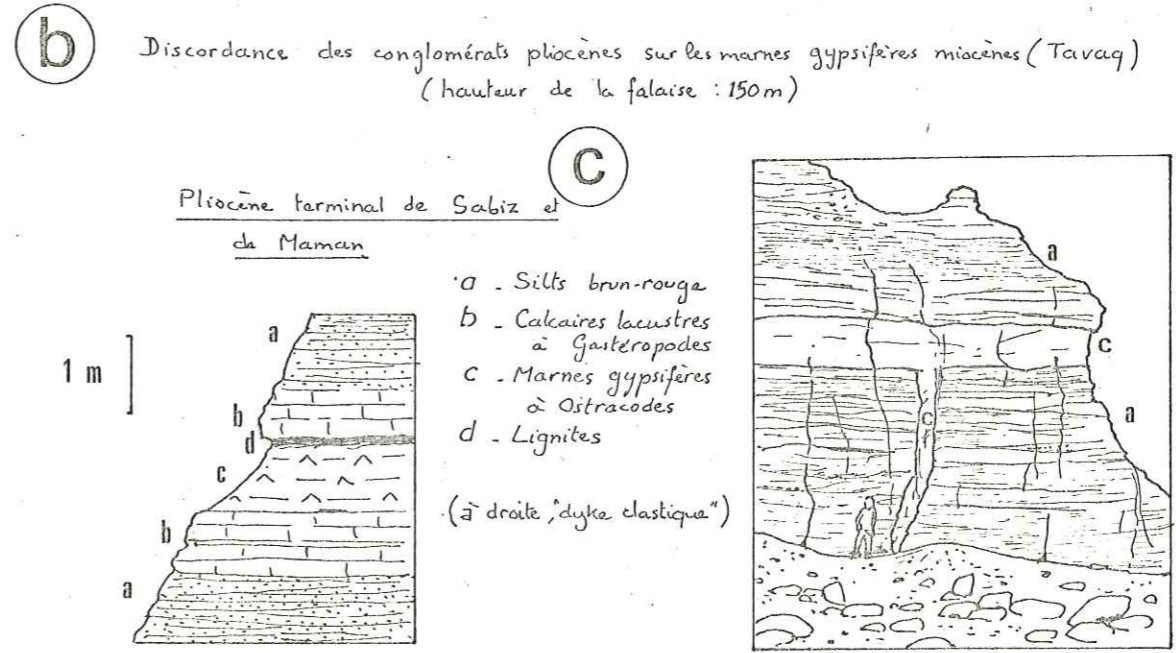 b
Discordance des conglomérats pliocènes sur les marnes gypsifères miocènes (Tavaq)
(hauteur de la falaise : 150 m)
C
Pliocène terminal de Sabiz et
de Maman
a - Silts brun-rouge
b - Calcaires lacustres
à Gastéropodes
c - Marnes gypsifères
à Ostracodes
d - Lignites
(à droite, "dyke clastique")
1 m
a
b
d
c
b
a
a
c
c
a